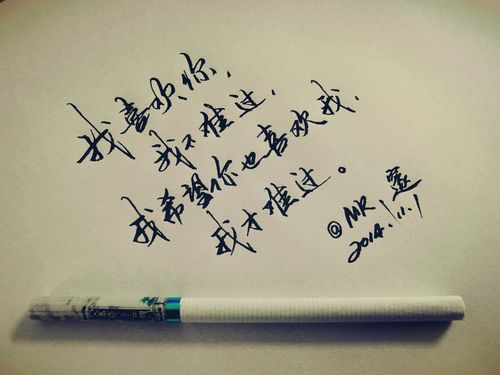 我喜欢你,
我不难过,
我希望你也喜欢我,
我才难过。
@MR
2014.11.1